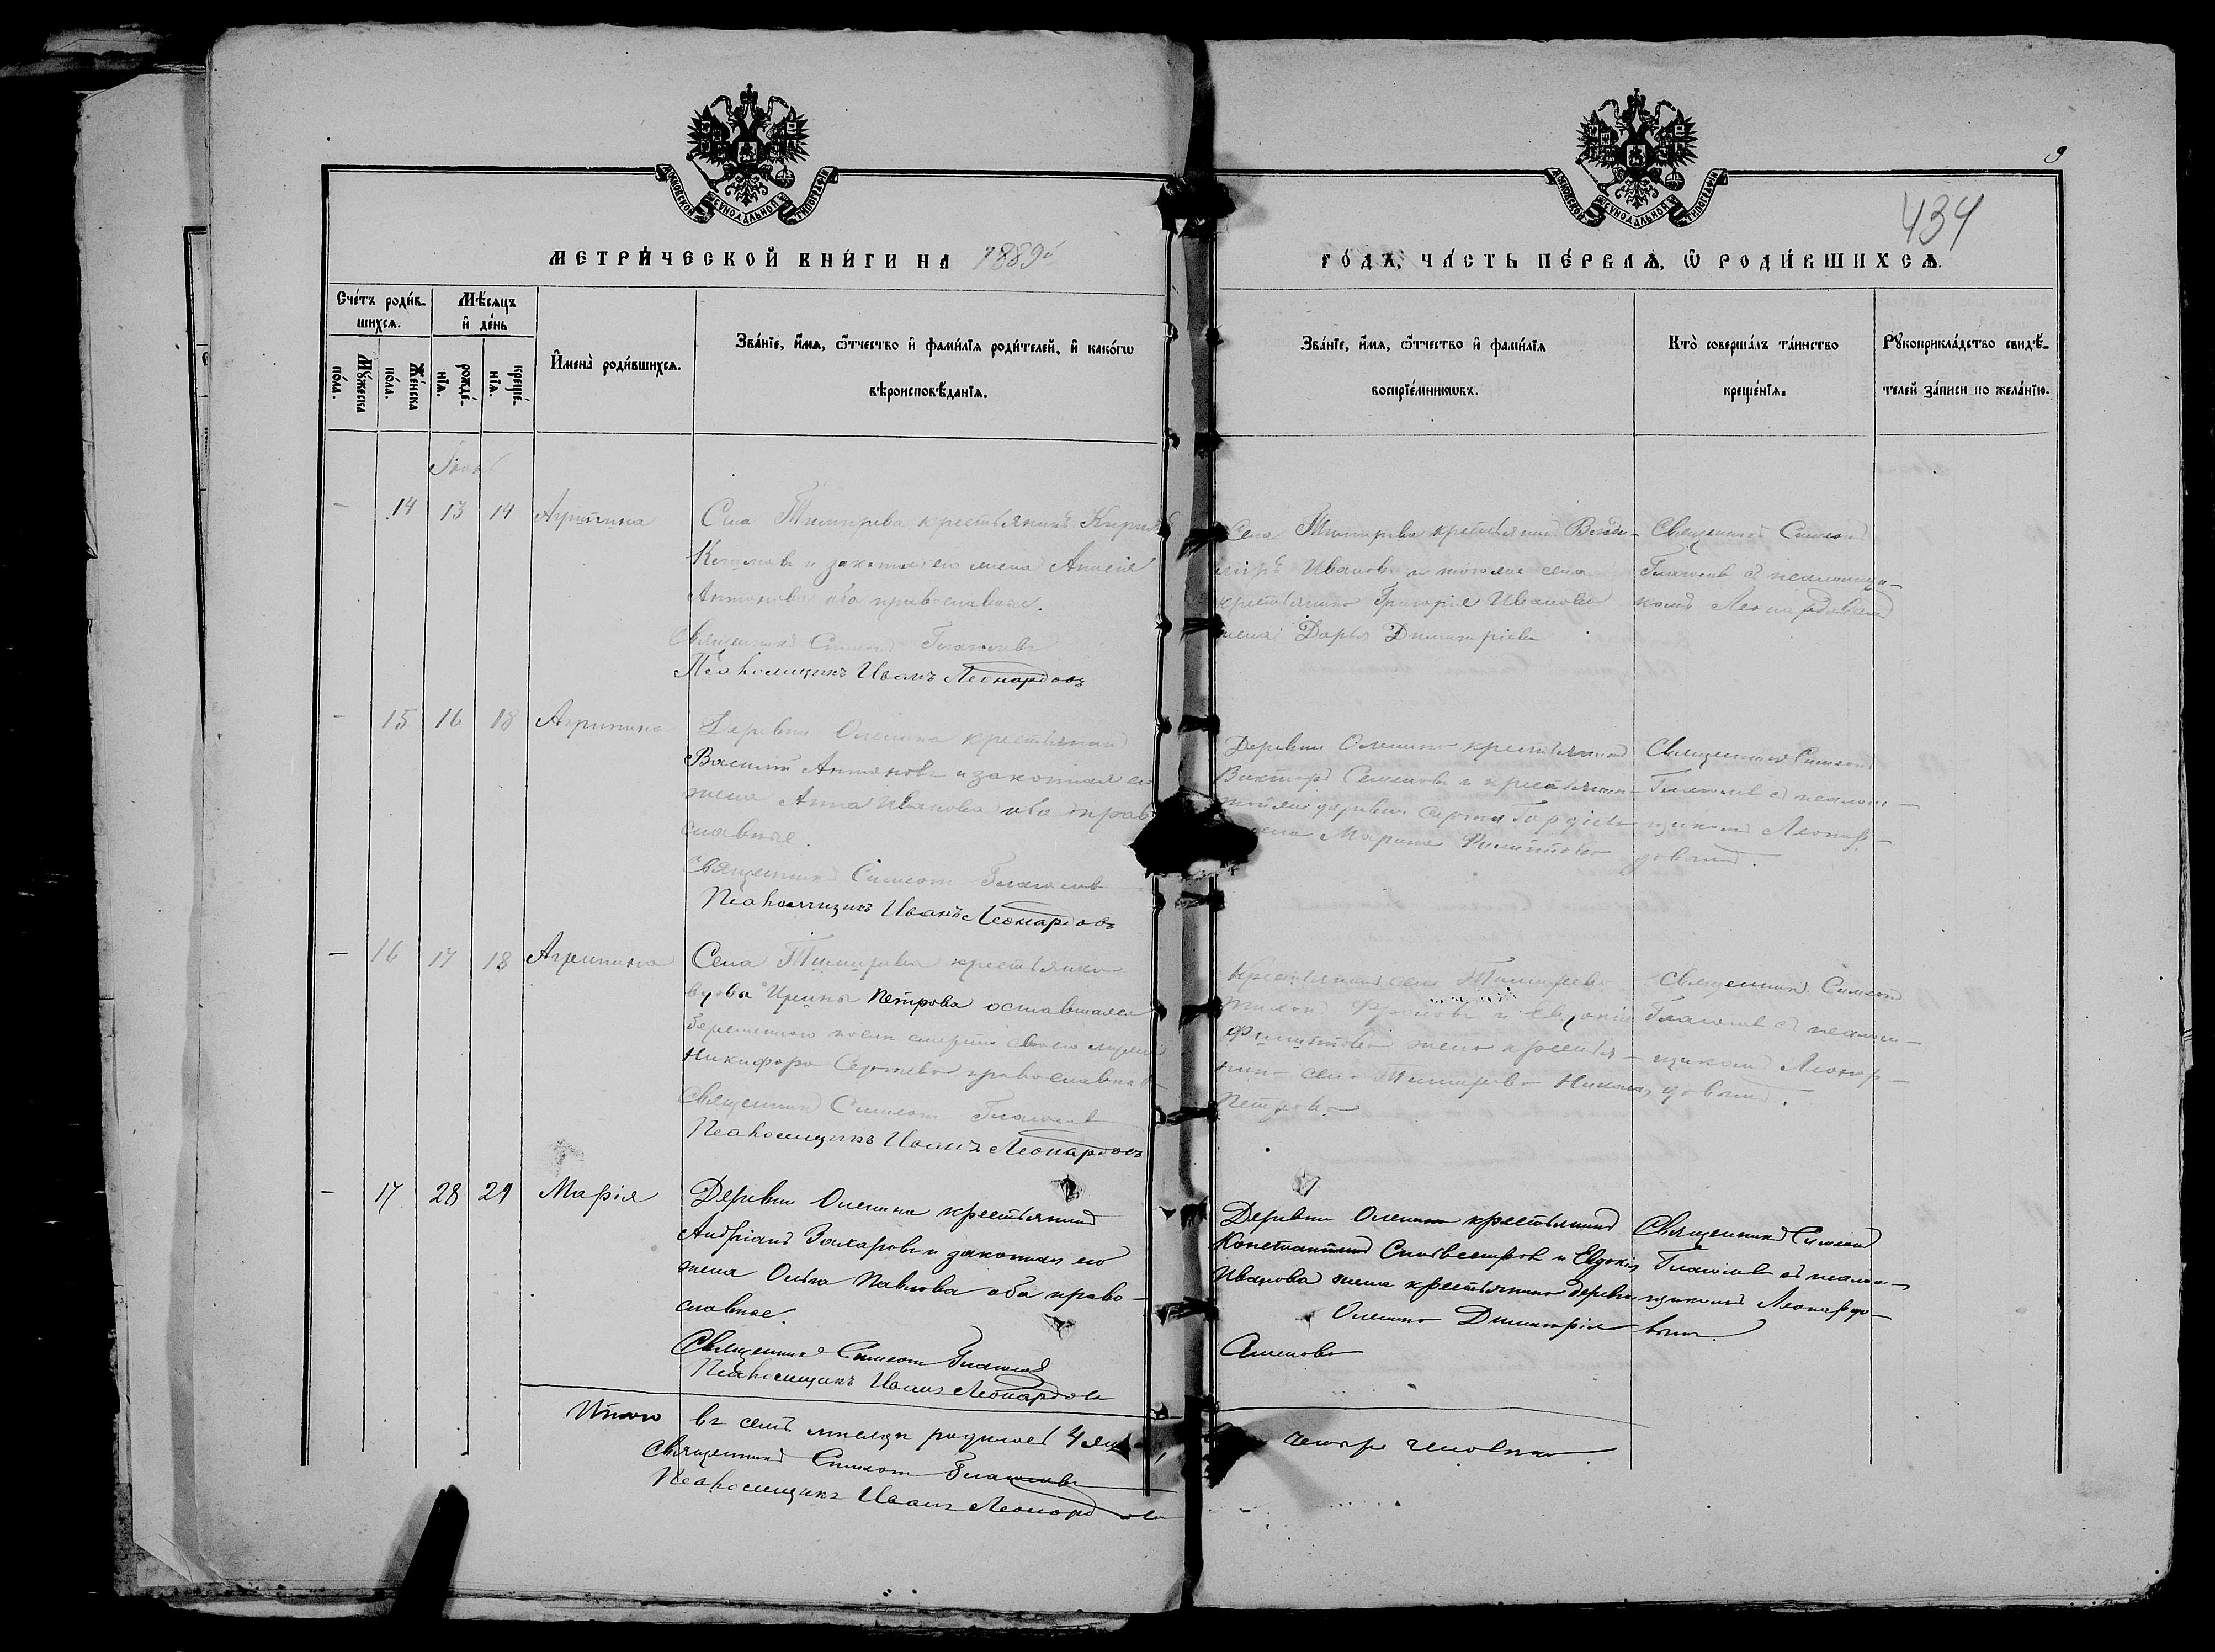 МОСКОВСКОЙ СѴНОДАЛЬНОЙ ТИПОГРАФІИ
МОСКОВСКОЙ СѴНОДАЛЬНОЙ ТИПОГРАФІИ
9
434
МЕТРИ́ЧЕСКОЙ КНИ́ГИ НА 1889й
ГО́ДЪ, ЧА́СТЬ ПЕ́РВАѦ, Ѡ РОДИ́ВШИХСѦ.
Сче́тъ роди́в-
шихсѧ.
Мѣ́сѧцъ
и҆ де́нь
Мꙋ́жеска
по́ла.
Же́нска
по́ла.
рожде́-
нїѧ.
креще́-
нїѧ.
И҆мена̀ роди́вшихсѧ.
Зва́нїе, и҆́мѧ, ѻ҆́тчество и҆ фами́лїѧ роди́телей, и҆ како́гѡ
вѣроисповѣ́данїѧ.
Зва́нїе, и҆́мѧ, ѻ҆́тчество и҆ фами́лїѧ
воспрїе́мникѡвъ.
Кто̀ соверша́лъ та́инство
креще́нїѧ.
Рꙋкоприкла́дство свидѣ́-
телей за́писи по жела́нїю.
Іюнь
- 14 13 14 Агрипина
Села Тимирева крестьянинъ Кирилъ
и законная его жена
Антонова оба православные.
Священникъ Симеонъ Глаголевъ
Псаломщикъ Иванъ Леонардовъ
Села Тимирева крестьянинъ Влади-
миръ Ивановъ и тогоже села
крестьянина Григорія Иванова
жена Дарья Димитріева
Священникъ Симеонъ
Глаголевъ съ псаломщи-
комъ Леонардовымъ
- 15 16 18 Агрипина
Деревни Оленина крестьянинъ
Василій Антоновъ и законная его
жена Анна Иванова оба право
славные.
Священникъ Симеонъ Глаголевъ
Псаломщикъ Иванъ Леонардовъ
Деревни Оленина крестьянинъ
Викторъ Семеновъ и крестьянин-
тойже деревни Гордіева
жена Марина Филиппова
Священникъ Симеонъ
Глаголевъ съ псалом-
щикомъ Леонар-
довымъ.
- 16 17 18 Агрипина
Села Тимирева крестьянка
вдова Ирина Петрова оставшаяся
беременною послѣ смерти своего мужа
Никифора Сергѣева православная
Священникъ Симеонъ Глаголевъ
Псаломщикъ Иванъ Леонардовъ
Крестьянинъ села Тимирева
Тихонъ Фроловъ и Евдокія
Филиппова жена крестья-
нина села Тимирева Николая
Петрова
Священникъ Симеонъ
Глаголевъ съ псалом-
щикомъ Леонар-
довымъ.
- 17 28 29 Марія
Деревни Оленина крестьянинъ
Андріанъ Захаровъ и законная его
жена Ольга Павлова оба право-
славные.
Священникъ Симеонъ Глаголевъ
Псаломщикъ Иванъ Леонардовъ
Деревни Оленина крестьянинъ
Константинъ Сильвестровъ и Евдокія
Иванова жена крестьянина деревни
Оленина Димитрія
Семенова
Священникъ Симеонъ
Глаголевъ съ псалом-
щикомъ Леонардо-
вымъ.
Итого въ семъ мѣсяцѣ родилось 4 жен
четыре человѣка.
Священникъ Симеонъ Глаголевъ
Псаломщикъ Иванъ Леонардовъ